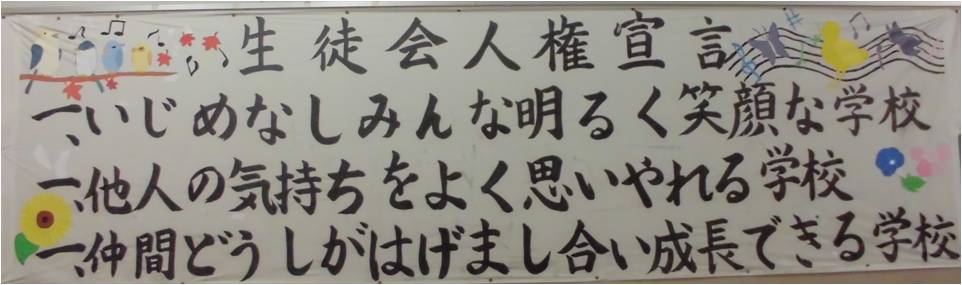 生徒会人権宣言
一、いじめなしみんな明るく笑顔な学校
一、他人の気持ちをよく思いやれる学校
一、仲間どうしがはげまし合い成長できる学校